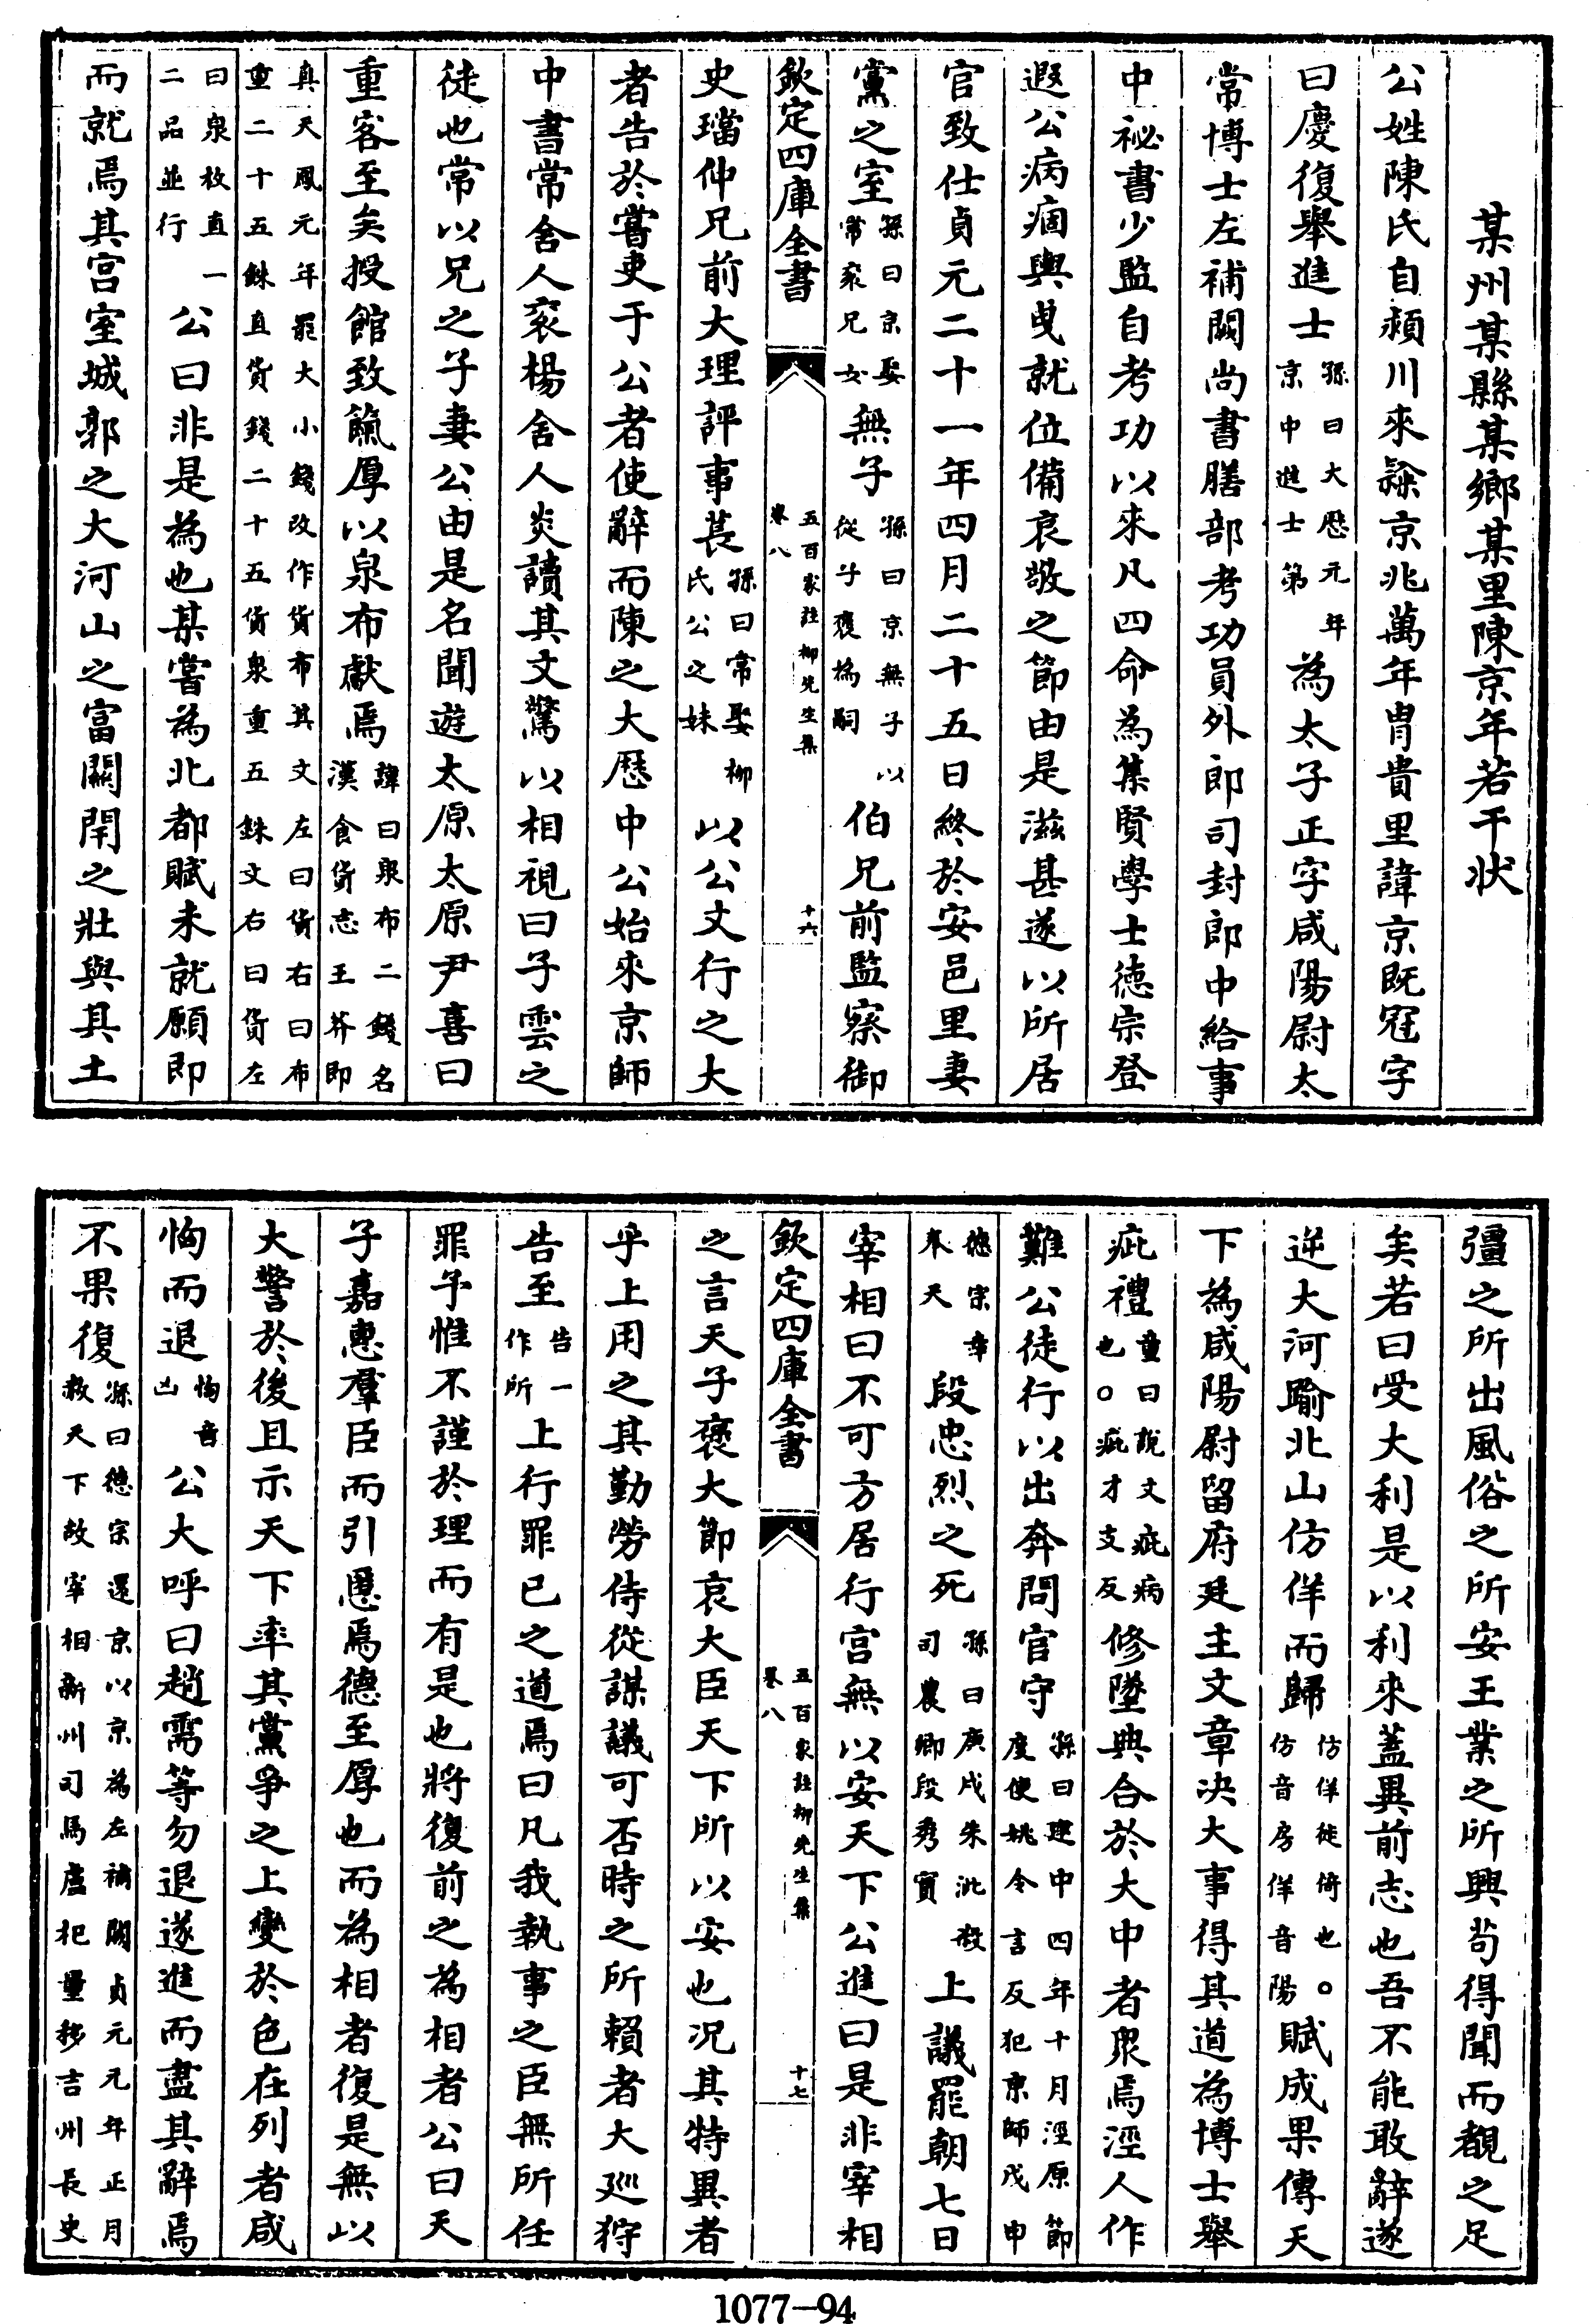 某州某縣某鄉某里陳京年若干狀
公姓陳氏自潁川來隸京兆萬年胄貴里諱京既冠字
曰慶復舉進士孫曰大厯元年京中進士第為太子正字咸陽尉太
常博士左補闕尚書膳部考功員外郎司封郎中給事
中祕書少監自考功以來凡四命為集賢學士德宗登
遐公病痼輿曳就位備哀敬之節由是滋甚遂以所居
官致仕貞元二十一年四月二十五日終於安邑里妻
黨之室孫曰京娶常衮兄女無子孫曰京無子以從子襃為嗣伯兄前監察御
欽定四庫全書
五百家註柳先生集
卷八
十六
史璫仲兄前大理評事萇孫曰常娶柳氏公之妹以公文行之大
者告於嘗吏于公者使辭而陳之大厯中公始來京師
中書常舍人衮楊舍人炎讀其文驚以相視曰子雲之
徒也常以兄之子妻公由是名聞遊太原太原尹喜曰
重客至矣授館致餼厚以泉布獻焉韓曰泉布二錢名漢食貨志王莽即
真天鳳元年罷大小錢改作貨布其文左曰貨右曰布重二十五銖直貨錢二十五貨泉重五銖文右曰貨左
曰泉枚直一二品並行公曰非是為也某嘗為北都賦未就願即
而就焉其宫室城郭之大河山之富關閈之壯與其土
彊之所出風俗之所安王業之所興苟得聞而覩之足
矣若曰受大利是以利來蓋異前志也吾不能敢辭遂
逆大河踰北山仿佯而歸仿佯徙倚也○仿音房佯音陽賦成果傳天
下為咸陽尉留府廷主文章决大事得其道為博士舉
疵禮童曰說文疵病也○疵才支反修墜典合於大中者衆焉涇人作
難公徒行以出奔問官守孫曰建中四年十月涇原節度使姚令言反犯京師戊申
德宗幸奉天段忠烈之死孫曰庚戌朱泚殺司農卿段秀實上議罷朝七日
宰相曰不可方居行宫無以安天下公進曰是非宰相
欽定四庫全書
五百家註柳先生集
卷八
十七
之言天子襃大節哀大臣天下所以安也况其特異者
乎上用之其勤勞侍從謀議可否時之所賴者大廵狩
告至告一作所上行罪已之道焉曰凡我執事之臣無所任
罪予惟不謹於理而有是也將復前之為相者公曰天
子嘉惠羣臣而引慝焉德至厚也而為相者復是無以
大警於後且示天下率其黨爭之上變於色在列者咸
恟而退恟音凶公大呼曰趙需等勿退遂進而盡其辭焉
不果復孫曰德宗還京以京為左補闕貞元元年正月赦天下故宰相新州司馬盧杞量移吉州長史
1077-94